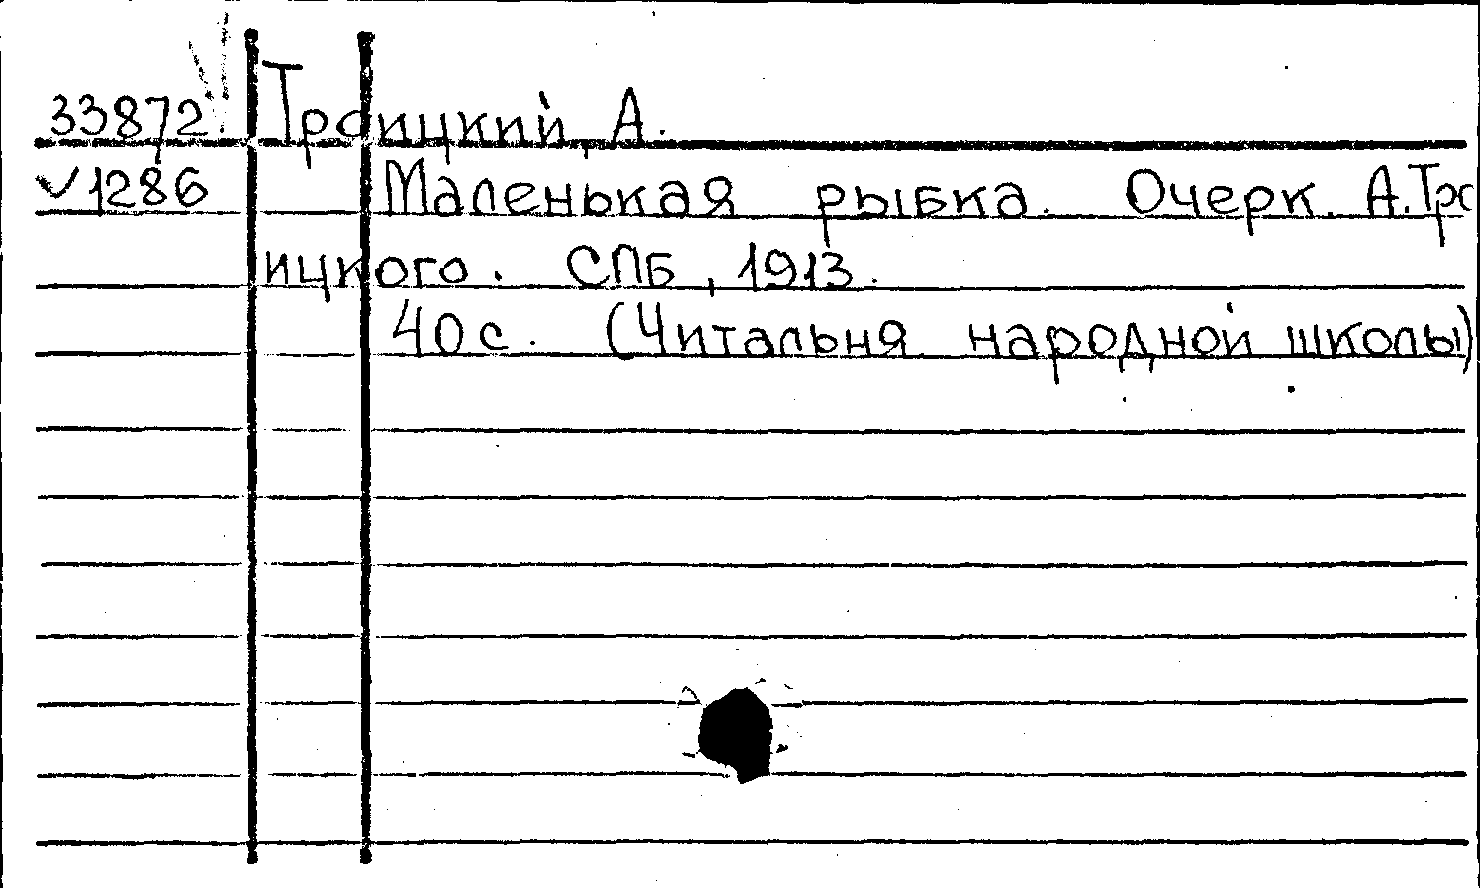 33872 Троицкий, А.
√1286 Маленькая рыбка. Очерк. А.Тро
ицкого. СПБ, 1913.
40с. (Читальня народной школы)